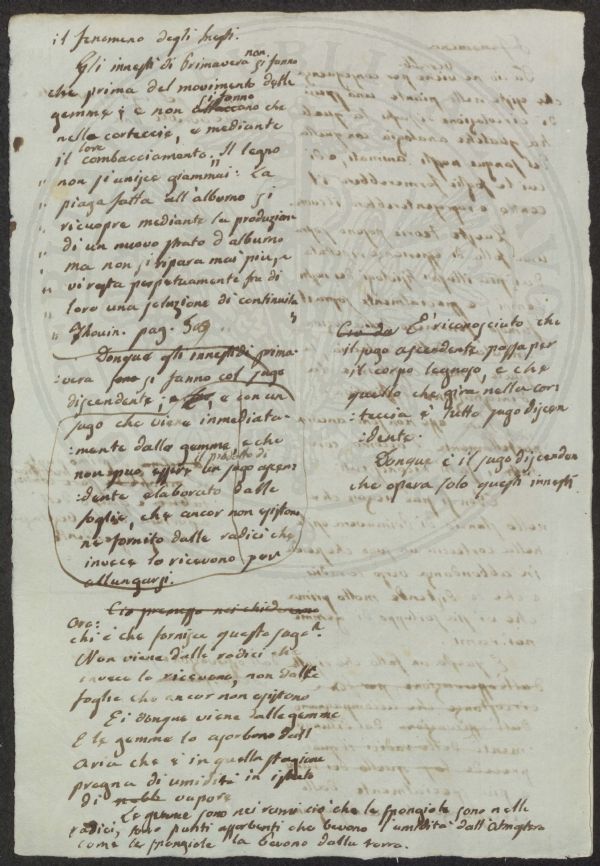 il fenomeno degli nesti.
Gli innesti di Primavera non si fanno
che prima del movimento delle
gemme; e non attaccano si fanno che
nella corteccia, e mediante
il loro combacciamento. "Il legno
" non si unisce giammai: La
" piaga fatta all'alburno si
" ricuopre mediante la produzion
" di un nuovo strato d'alburno
" ma non si ripara mai più, e
" vi resta perpetuamente fra di
" loro una soluzione di continuità
" Thouin. pag. 509 "
Donque gli innesti di prima:
:vera sono si fanno col sugo
discendente; e con un
sugo che viene inmediata:
:mente dalle gemme, e che
non può essere il prodotto di un sugo ascen:
:dente elaborato dalle
foglie, che ancor non esistono
ne fornito dalle radici che
invece lo ricevono per
allungarsi.
Ciò premesso nei chiederemo
Ora:
chi è che fornisce questo sugo?
Non viene dalle radici che
invece lo ricevono, non dalle
foglie che ancor non esistono
Ei donque viene dalle gemme
E le gemme lo assorbono dall'
Aria che è in quella stagione
pregna di umidità in istato
di noble vapore
Le gemme sono nei rami ciò che le spongiole sono nelle
radici, sono punti assorbenti che bevono l'umidità dall'Atmosfera
come le spongiole la bevono dalla terra.
È riconosciuto che
il sugo ascendente passa per
il corpo legnoso, e che
quello che gira nella cor:
:teccia è tutto sugo discen
:dente.
Donque è il sugo discenden
che opera solo questi innesti